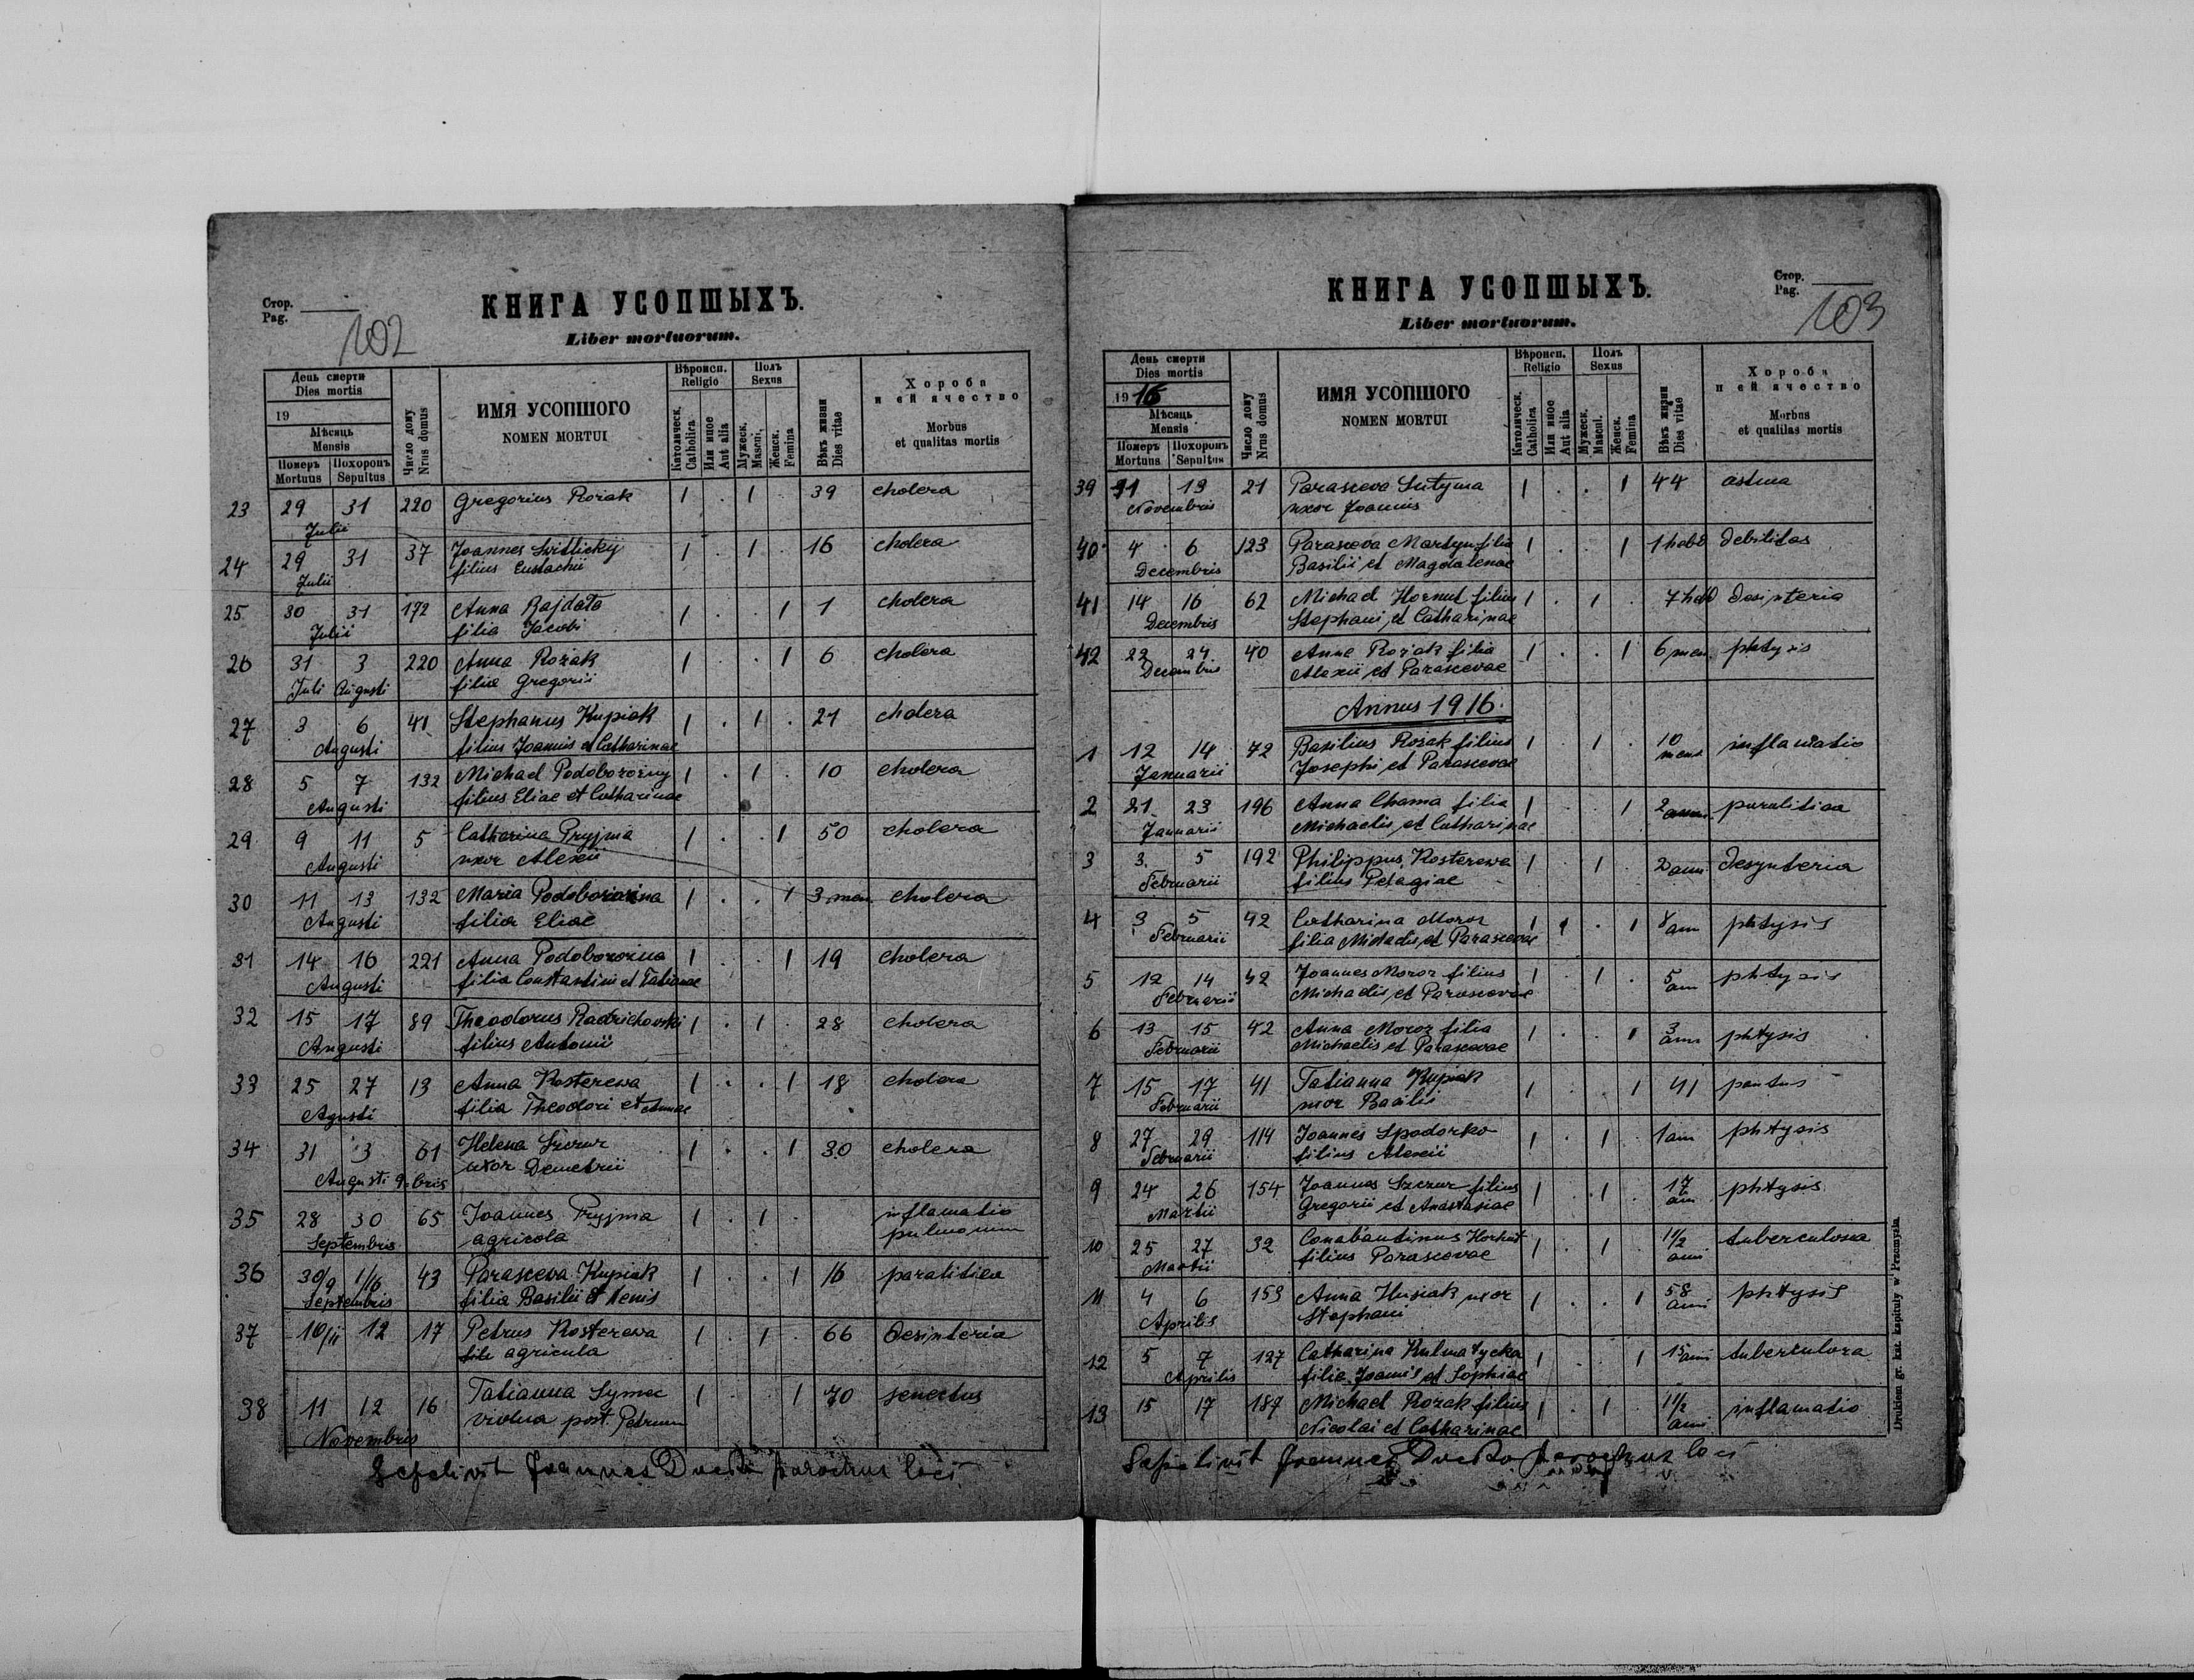 Стор.
Pag.
102
КНИГА УСОПШЫХЪ.
Liber mortuorum.
День смерти
Dies mortis
19
Мѣсяць
Mensis
Померъ Похоронъ
Mortuus Sepultus
Число дому
Nrus domus
ИМЯ УСОПШОГО
NOMEN MORTUI
Вѣроисп.
Religio
Католическ.
Catholica
Или иное
Aut alia
Полъ
Sexus
Мужеск.
Mascul.
Женск.
Femina
Вѣкъ жизни
Dies vitae
Хороба
и ей ячество
Morbus
et qualitas mortis
23 29 31 220 Gregorius Rożak 1 . 1 . 39 cholera
Julii
24 29 31 37 Joannes Switlickyj 1 . 1 . 16 cholera
Julii filius Eustachii
25 30 31 172 Anna Bajdała 1 . . 1 1 cholera
Julii filia Jacobi
26 31 3 220 Anna Rożak 1 . . 1 6 cholera
Juli Augusti filia Gregorii
27 3 6 41 Stephanus Kupiak 1 . 1 . 21 cholera
Augusti filius Joannis et Catharinae
28 5 7 132 Michael Podoborozny 1 . 1 . 10 cholera
Augusti filius Eliae et Catharinae
29 9 11 5 Catharina Pryjma 1 . . 1 50 cholera
Augusti uxor Alexii
30 11 13 132 Maria 1 . . 1 3 men. cholera
Augusti filia Eliae
31 14 16 221 Anna Podoborozna 1 . . 1 19 cholera
Augusti filia Constantini et Tatianae
32 15 17 89 Theodorus 1 . 1 . 28 cholera
Augusti filius Antonii
33 25 27 13 Anna Kosterewa 1 . . 1 18 cholera
Agusti filia Theodori et Annae
34 31 3 61 Helena Szczur 1 . . 1 30 cholera
Augusti 9.bris uxor Demetrii
35 28 30 65 Joannes Pryjma 1 . 1 . inflamatio
Septembris agricola pulmonum
36 30/9 1/10 43 Parasceva Kupiak 1 . . 1 16 paralitica
Septembris filia Basilii et
37 10/11 12 17 Petrus Kosterewa 1 . 1 . 66 desinteria
agricula
38 11 12 16 Tatianna Symec 1 . . 1 70 senectus
Novembris vidua post. Petrum
Sepelivit Joannes parochus loci
Стор.
Pag.
103
КНИГА УСОПШЫХЪ.
Liber mortuorum.
День смерти
Dies mortis
19 16
Мѣсяць
Mensis
Померъ Похоронъ
Mortuus Sepultus
Число дому
Nrus domus
ИМЯ УСОПШОГО
NOMEN MORTUI
Вѣроисп.
Religio
Католическ.
Catholica
Или иное
Aut alia
Полъ
Sexus
Мужеск.
Mascul.
Женск.
Femina
Вѣкъ жизни
Dies vitae
Хороба
и ей ячество
Morbus
et qualitas mortis
39 11 13 21 Parasceva 1 . . 1 44 astma
Novembris uxor Joannis
40 4 6 123 Parasceva Martyn filia 1 . . 1 1 hebd debilitas
Decembris Basilii et Magdalenae
41 14 16 62 Michael Hornut filius 1 . 1 . 7 hebd desinteria
Decembris Stephani et Catharinae
42 22 24 40 Anna Rożak filia 1 . . 1 6 men. phtysis
Decembris Alexii et Parascevae
Annus 1916.
1 12 14 72 Basilius Rożak filius 1 . 1 . 10 inflamatio
Januarii Josephi et Parascevae mens
2 21 23 196 Anna Chama filia 1 . . 1 2 anni. paralitica
Januarii Michaelis et Catharinae
3 3. 5 192 Philippus Kosterewa 1 . 1 2 anni desynteria
Februarii filius Pelagiae
4 3 5 42 Catharina Moroz 1 . . 1 8 phtysis
Februarii filia Michaelis et Parascevae ann
5 12 14 42 Joannes Moroz filius 1 . 1 . 5 phtysis
Februarii Michaelis et Parascevae ann
6 13 15 42 Anna Moroz filia 1 . . 1 3 phtysis
Februarii Michaelis et Parascevae ann
7 15 17 41 Tatianna Kupiak 1 . . 1 41 partus
Februarii uxor Basilii
8 27 29 114 Joannes Spodorko 1 . 1 . 1 ann phtysis
Februarii filius Alexii
9 24 26 154 Joannes Szczur filius 1 . 1 . 17 phtysis
Martii Gregorii et Anastasiae ann
10 25 27 32 Constantinus Hornut 1 . 1 . 1 1/2 tuberculosa
Martii filius Parascevae anni
11 4 6 153 Anna Husiak uxor 1 . . 1 58 phtysis
Aprilis Stephani anni
12 5 7 127 Catharina Kulmatycka 1 . . 1 15 anni tuberculoza
Aprilis filia Joannis et Sophiae
13 15 17 187 Michael Rozak filius 1 . 1 . 1 1/2 inflamatio
Nicolai et Catharinae anni
Sepelivit Joannes parochus loci
Drukiem gr. kat. kapituły w Przemyślu.